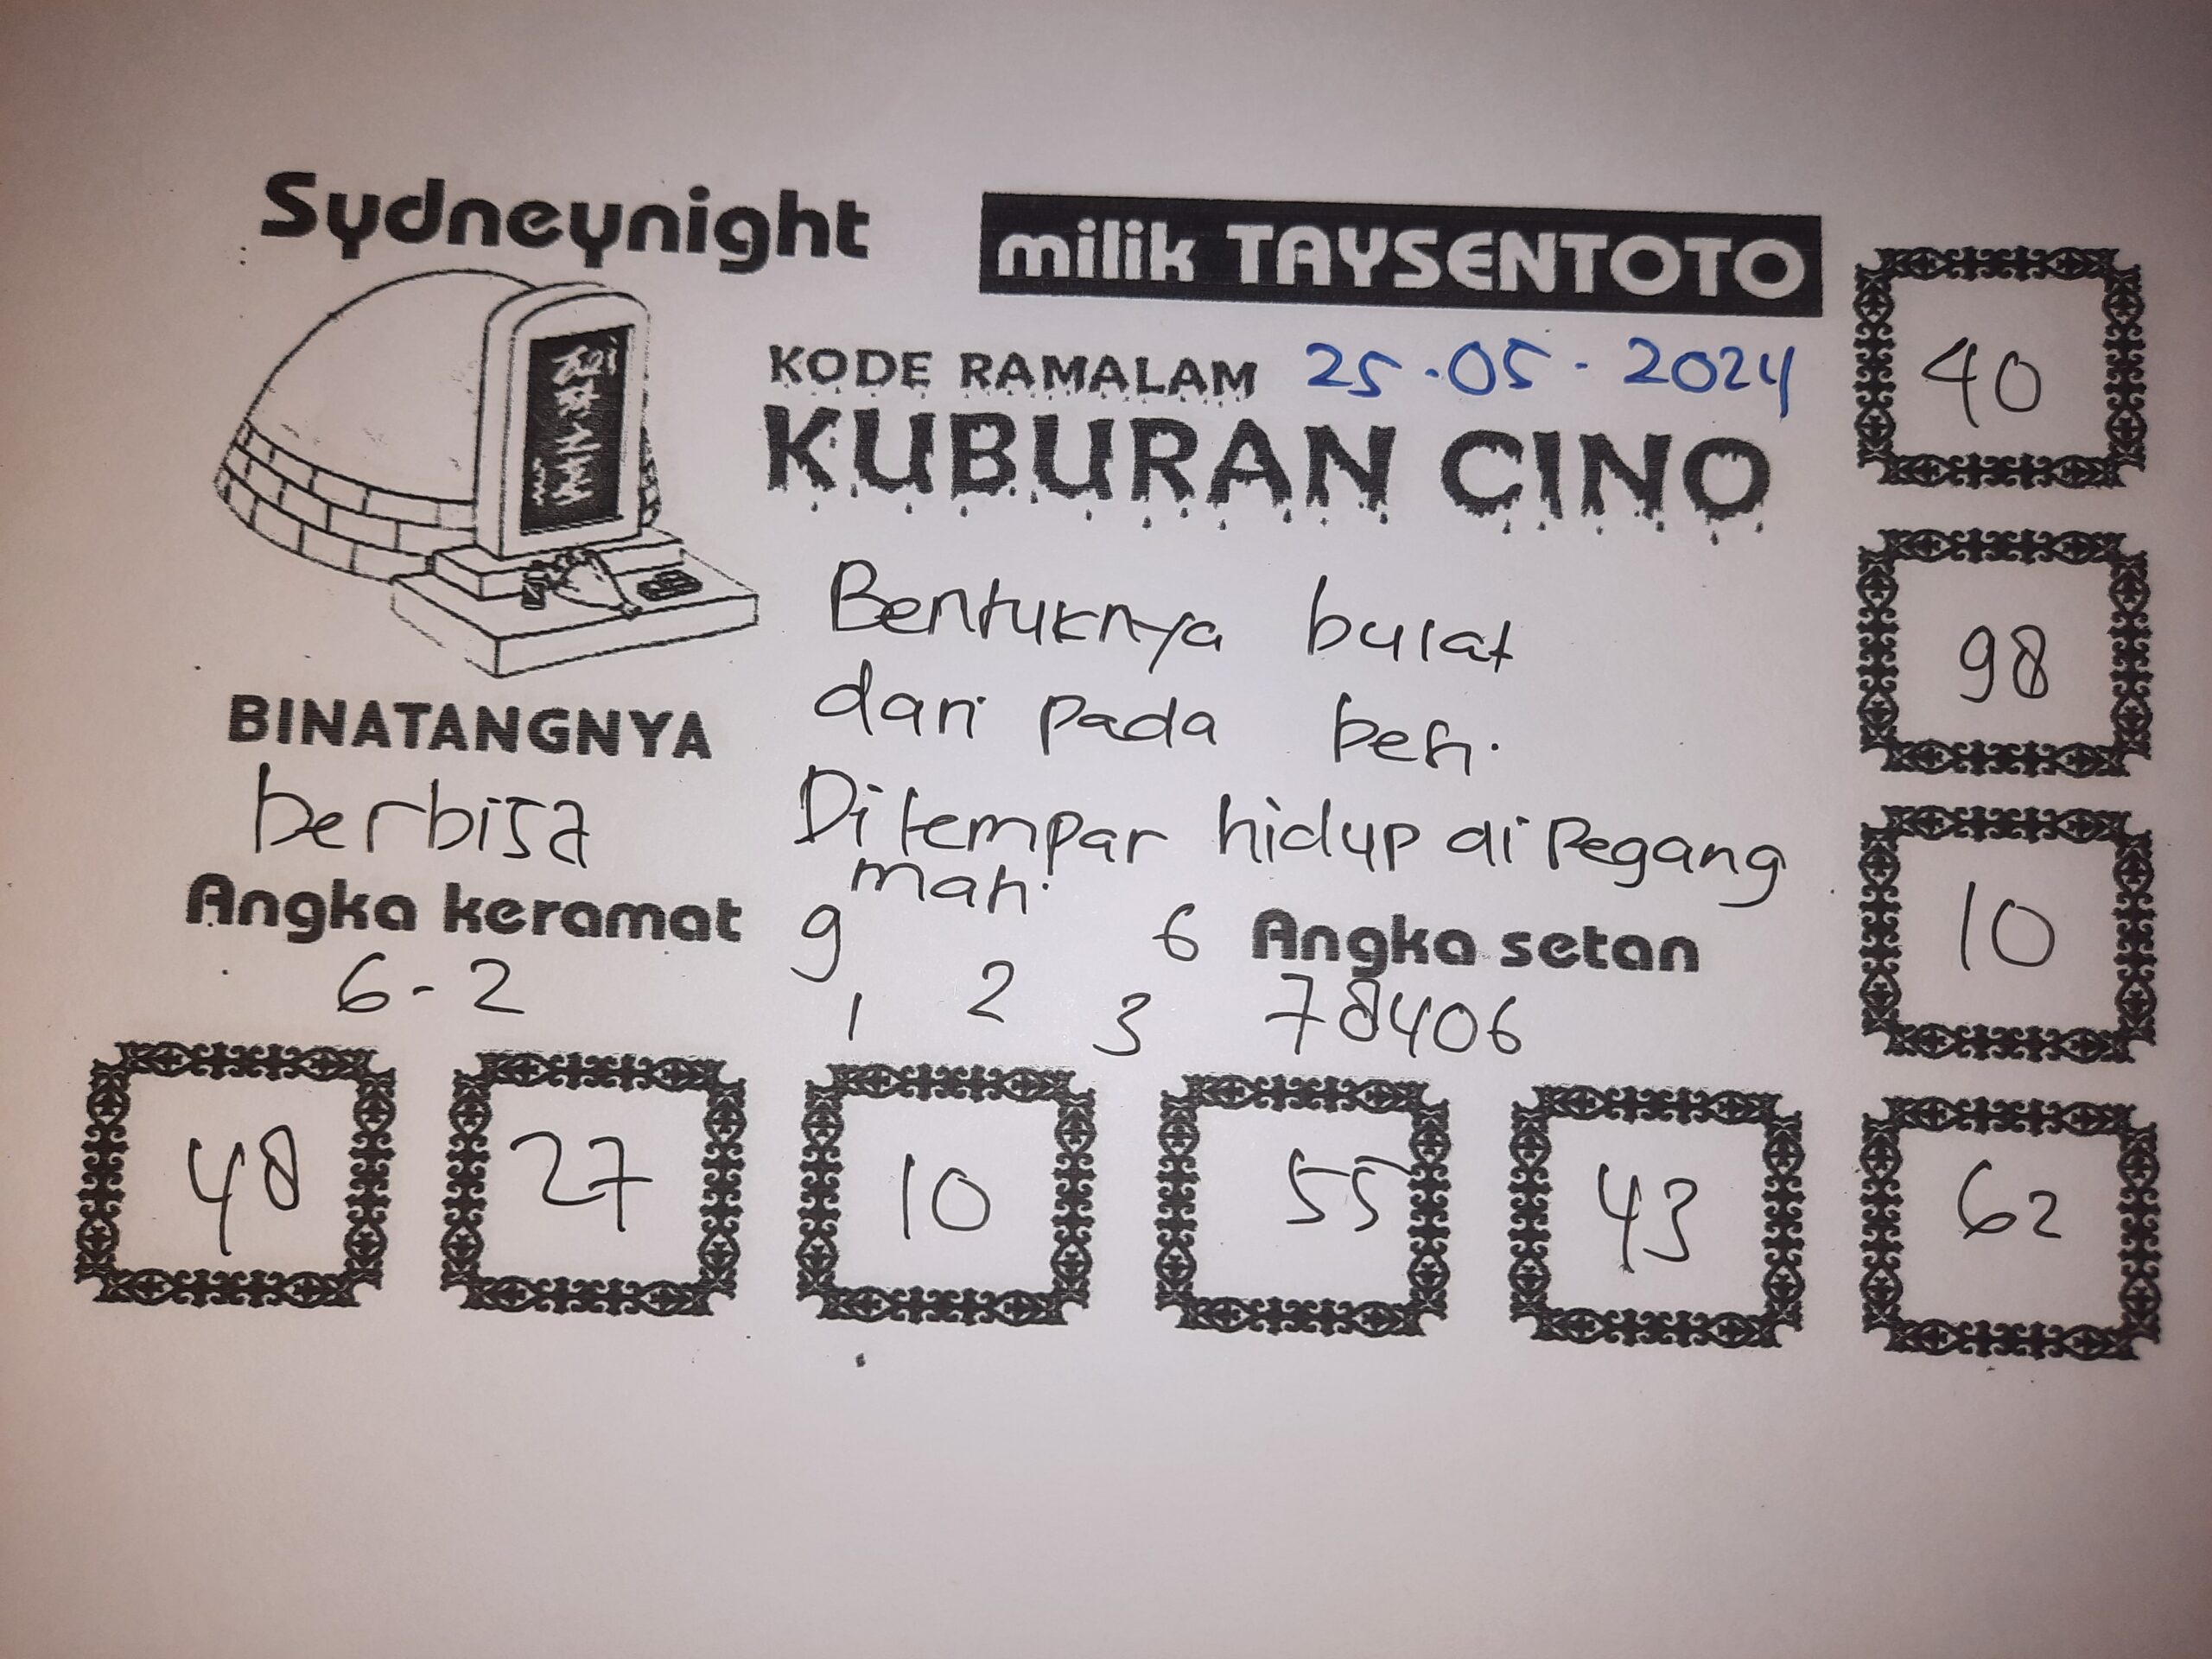 Sydneynight
milik TAYSENTOTO
KODE RAMALAM 25.05.2024
KUBURAN CINO
Bentuknya bulat
dari pada besi.
Ditempar hidup di Pegang
mati.
BINATANGNYA
berbisa
Angka keramat
6-2
9 6
1 2 3
Angka setan
78406
40
98
10
48 27 10 55 43 62